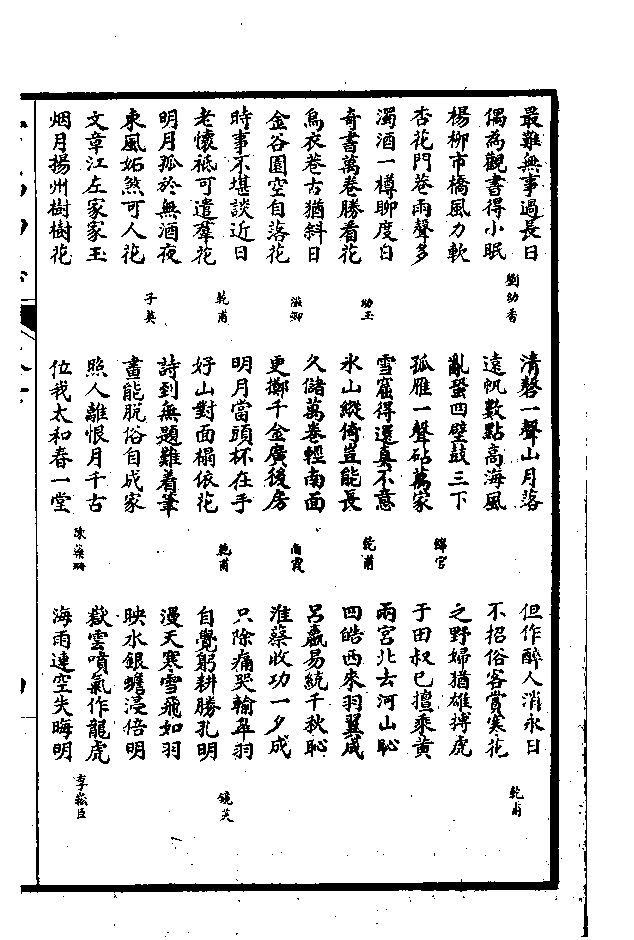 最難無事過長日
偶為觀書得小眠
劉幼香
楊柳市橋風力軟
杏花門巷雨聲多
濁酒一樽聊度日
奇書萬卷勝看花
幼玉
烏衣巷古猶斜日
金谷園空自落花
滋卿
時事不堪談近日
老懷祗可遣羣花
乾甫
明月孤於無酒夜
東風妬煞可人花
子英
文章江左家家玉
烟月揚州樹樹花
清磬一聲山月落
遠帆數點高海風
亂蛩四壁鼓三下
孤雁一聲砧萬家
錦官
雪窟得還真不意
氷山縱倚豈能長
乾甫
久儲萬卷輕南面
更擲千金廣後房
南霞
明月當頭杯在手
好山對面榻依花
乾甫
詩到無題難着筆
畫能脫俗自成家
照人離恨月千古
位我太和春一堂
陳珊
但作醉人消永日
不招俗客賞寒花
乾甫
之野婦猶雄搏虎
于田叔已擅乘黃
兩宮北去河山恥
四皓西來羽翼成
呂嬴易統千秋恥
淮蔡收功一夕成
只除痛哭輸臯羽
自覺躬耕勝孔明
鏡芙
漫天寒雪飛如羽
映水銀蟾浸倍明
嶽雲噴氣作龍虎
海雨連空失晦明
李崧臣